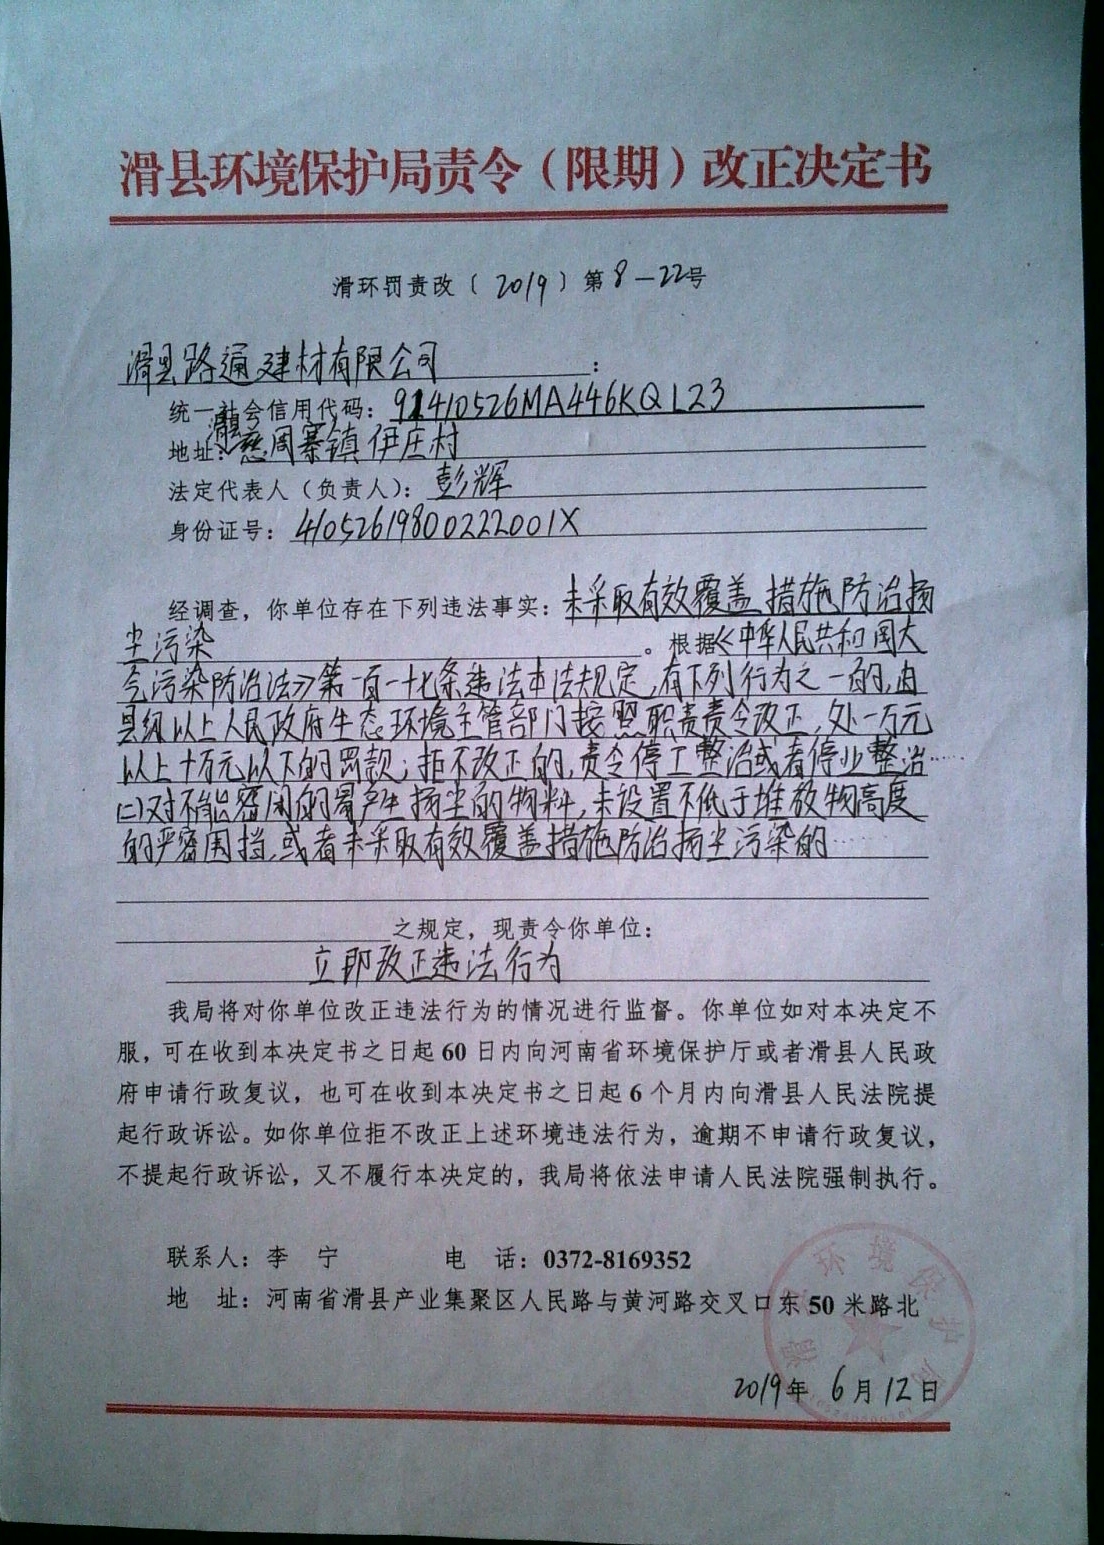 滑县环境保护局责令（限期）改正决定书
滑环罚责改〔2019〕第8—22号
滑县路通建材有限公司：
统一社会信用代码：91410526MA446KQL23
地址：滑县慈周寨镇伊庄村
法定代表人（负责人）：彭辉
身份证号：41052619800222001X
经调查，你单位存在下列违法事实：未采取有效覆盖措施防治扬
尘污染。根据《中华人民共和国大
气污染防治法》第一百一十七条违法本法规定，有下列行为之一的，由
县级以上人民政府生态环境主管部门按照职责责令改正，处一万元
以上十万元以下的罚款；拒不改正的，责令停工整治或者停业整治……
(二)对不能密闭的易产生扬尘的物料，未设置不低于堆放物高度
的严密围挡，或者未采取有效覆盖措施防治扬尘污染的……
之规定，现责令你单位：
立即改正违法行为
我局将对你单位改正违法行为的情况进行监督。你单位如对本决定不
服，可在收到本决定书之日起60日内向河南省环境保护厅或者滑县人民政
府申请行政复议，也可在收到本决定书之日起6个月内向滑县人民法院提
起行政诉讼。如你单位拒不改正上述环境违法行为，逾期不申请行政复议，
不提起行政诉讼，又不履行本决定的，我局将依法申请人民法院强制执行。
联系人：李 宁 电 话：0372-8169352
地 址：河南省滑县产业集聚区人民路与黄河路交叉口东50米路北
滑县环境保护局
2019年6月12日